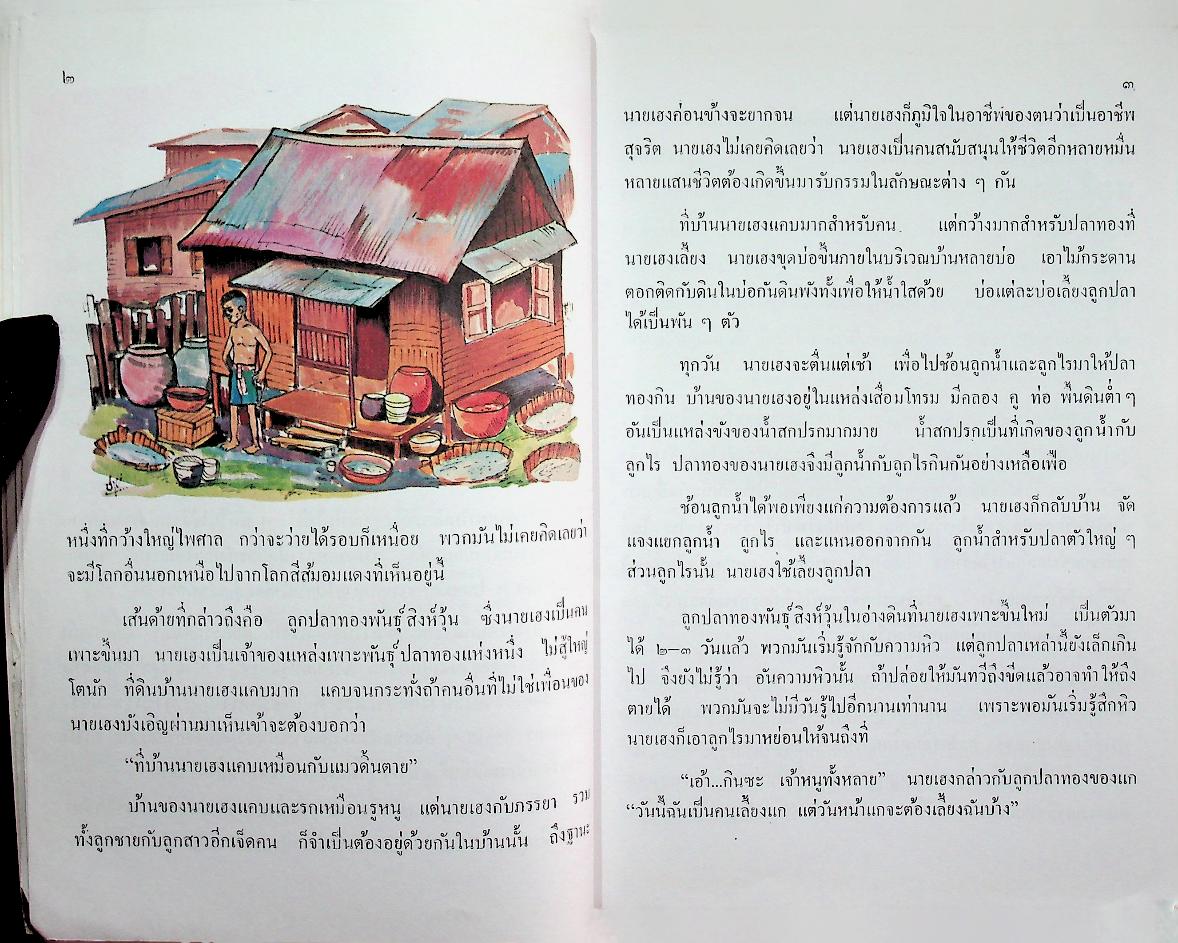 ๒
หนึ่งที่กว้างใหญ่ไพศาล กว่าจะว่ายได้รอบก็เหนื่อย พวกมันไม่เคยคิดเลยว่า
จะมีโลกอื่นนอกเหนือไปจากโลกสีส้มอมแดงที่เห็นอยู่นี้
เส้นด้ายที่กล่าวถึงคือ ลูกปลาทองพันธุ์สิงห์วุ้น ซึ่งนายเฮงเป็นคน
เพาะขึ้นมา นายเฮงเป็นเจ้าของแหล่งเพาะพันธุ์ปลาทองแห่งหนึ่ง ไม่สู้ใหญ่
โตนัก ที่ดินบ้านนายเฮงแคบมาก แคบจนกระทั่งถ้าคนอื่นที่ไม่ใช่เพื่อนของ
นายเฮงบังเอิญผ่านมาเห็นเข้าจะต้องบอกว่า
“ที่บ้านนายเฮงแคบเหมือนกับแมวดิ้นตาย”
บ้านของนายเฮงแคบและรกเหมือนรูหนู แต่นายเฮงกับภรรยา รวม
ทั้งลูกชายกับลูกสาวอีกเจ็ดคน ก็จำเป็นต้องอยู่ด้วยกันในบ้านนั้น ถึงฐานะ
๓
นายเฮงค่อนข้างจะยากจน แต่นายเฮงก็ภูมิใจในอาชีพของตนว่าเป็นอาชีพ
สุจริต นายเฮงไม่เคยคิดเลยว่า นายเฮงเป็นคนสนับสนุนให้ชีวิตอีกหลายหมื่น
หลายแสนชีวิตต้องเกิดขึ้นมารับกรรมในลักษณะต่าง ๆ กัน
ที่บ้านนายเฮงแคบมากสำหรับคน แต่กว้างมากสำหรับปลาทองที่
นายเฮงเลี้ยง นายเฮงขุดบ่อขึ้นภายในบริเวณบ้านหลายบ่อ เอาไม้กระดาน
ตอกติดกับดินในบ่อกันดินพังทั้งเพื่อให้น้ำใสด้วย บ่อแต่ละบ่อเลี้ยงลูกปลา
ได้เป็นพัน ๆ ตัว
ทุกวัน นายเฮงจะตื่นแต่เช้า เพื่อไปช้อนลูกน้ำและลูกไรมาให้ปลา
ทองกิน บ้านของนายเฮงอยู่ในแหล่งเสื่อมโทรม มีคลอง คู ท่อ พื้นดินต่ำๆ
อันเป็นแหล่งขังของน้ำสกปรกมากมาย น้ำสกปรกเป็นที่เกิดของลูกน้ำกับ
ลูกไร ปลาทองของนายเฮงจึงมีลูกน้ำกับลูกไรกินกันอย่างเหลือเฟือ
ช้อนลูกน้ำได้พอเพียงแก่ความต้องการแล้ว นายเฮงก็กลับบ้าน จัด
แจงแยกลูกน้ำ ลูกไร และแหนออกจากกัน ลูกน้ำสำหรับปลาตัวใหญ่ ๆ
ส่วนลูกไรนั้น นายเฮงใช้เลี้ยงลูกปลา
ลูกปลาทองพันธุ์สิงห์วุ้นในอ่างดินที่นายเฮงเพาะขึ้นใหม่ เป็นตัวมา
ได้ ๒–๓ วันแล้ว พวกมันเริ่มรู้จักกับความหิว แต่ลูกปลาเหล่านี้ยังเล็กเกิน
ไป จึงยังไม่รู้ว่า อันความหิวนั้น ถ้าปล่อยให้มันทวีถึงขีดแล้วอาจทำให้ถึง
ตายได้ พวกมันจะไม่มีวันรู้ไปอีกนานเท่านาน เพราะพอมันเริ่มรู้สึกหิว
นายเฮงก็เอาลูกไรมาหย่อนให้จนถึงที่
“เอ้า...กินซะ เจ้าหนูทั้งหลาย” นายเฮงกล่าวกับลูกปลาทองของแก
“วันนี้ฉันเป็นคนเลี้ยงแก แต่วันหน้าแกจะต้องเลี้ยงฉันบ้าง”